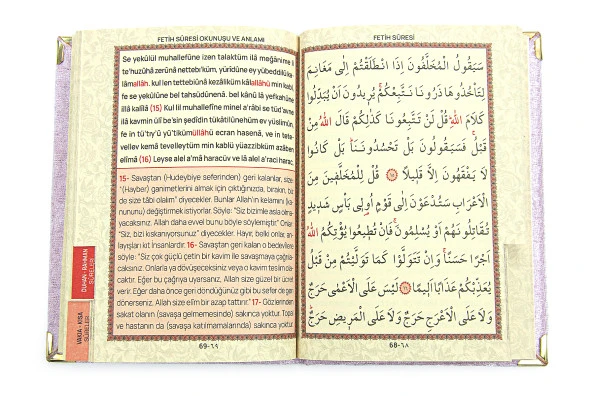 FETİH SÛRESİ OKUNUŞU VE ANLAMI
Se yekûlül muhallefûne izen talaktüm ilâ meğânime li
te'huzûhâ zerûnâ nettebı'küm, yürîdûne ey yübeddilû ke
lâmallâh, kul len tettebiûnâ kezâliküm kâlallâhü min kabl,
fe se yekûlûne bel tahsüdûnenâ. bel kânû lâ yefkahûne
illâ kalîlâ (15) Kul lil muhallefîne minel a'râbi se tüd'avne
ilâ kavmin ülî be'sin şedîdin tükâtilûnehüm ev yüslimûn,
fe in tü'tıy'û yü'tikümüllâhü ecran hasenâ, ve in tete-
vellev kemâ tevelleytüm min kablü yüazzibküm azâben
elîmâ (16) Leyse alel a'mâ haracüv ve lâ alel a'raci harac,
15- Savaştan (Hudeybiye seferinden) geri kalanlar, size
"(Hayber) ganimetlerini almak için çıktığınızda, bırakın, biz
de size tâbi olalım" diyecekler. Bunlar Allah'ın kelamını (ka-
nununu) değiştirmek istiyorlar. Söyle: "Siz bizimle asla olma-
yacaksınız. Allah daha evvel bunu böyle söylemiştir." Onlar:
"Siz, bizi kıskanıyorsunuz" diyecekler. Hayır, belki onlar, an-
layışları kıt insanlardır. 16- Savaştan geri kalan o bedevîlere
söyle: "Siz çok güçlü çetin bir kavim ile savaşmaya çağrıla-
caksınız. Onlarla ya dövüşeceksiniz veya o kavim teslim ola-
caktır. Eğer bu çağrıya uyarsanız, Allah size güzel bir ücret
verir. Eğer daha önce geri döndüğünüz gibi bu sefer de geri
dönerseniz. Allah size elîm bir azap tattırır." 17- Gözlerinden
sakat olanın (savaşa gelmemesinde) sakınca yoktur. Topal
ve hastanın da (savaşa katılmamalarında) sakınca yoktur.
69-٦٩
DUHAN - RAHMAN
SÛRELERİ
VAKIA - KISA
SÛRELER
FETİH SÛRESİ
سَيَقُولُ الْمُخَلَّفُونَ اِذَا انْطَلَقْتُمْ اِلٰى مَغَانِمَ
لِتَأْخُذُوهَا ذَرُونَا نَتَّبِعْكُمْ يُرِيدُونَ اَنْ يُبَدِّلُوا
كَلَامَ اللّٰهِ قُلْ لَنْ تَتَّبِعُونَا كَذٰلِكُمْ قَالَ اللّٰهُ مِنْ
قَبْلُ فَسَيَقُولُونَ بَلْ تَحْسُدُونَنَا بَلْ كَانُوا
لَا يَفْقَهُونَ اِلَّا قَلِيلًا ﴿١٥﴾ قُلْ لِلْمُخَلَّفِينَ مِنَ
الْاَعْرَابِ سَتُدْعَوْنَ اِلٰى قَوْمٍ اُولِى بَأْسٍ شَدِيدٍ
تُقَاتِلُونَهُمْ اَوْ يُسْلِمُونَ فَاِنْ تُطِيعُوا يُؤْتِكُمُ اللّٰهُ
اَجْرًا حَسَنًا وَاِنْ تَتَوَلَّوْا كَمَا تَوَلَّيْتُمْ مِنْ قَبْلُ
يُعَذِّبْكُمْ عَذَابًا اَلِيمًا ﴿١٦﴾ لَيْسَ عَلَى الْاَعْمٰى حَرَجٌ
وَلَا عَلَى الْاَعْرَجِ حَرَجٌ وَلَا عَلَى الْمَرِيضِ حَرَجٌ
68-٦٨